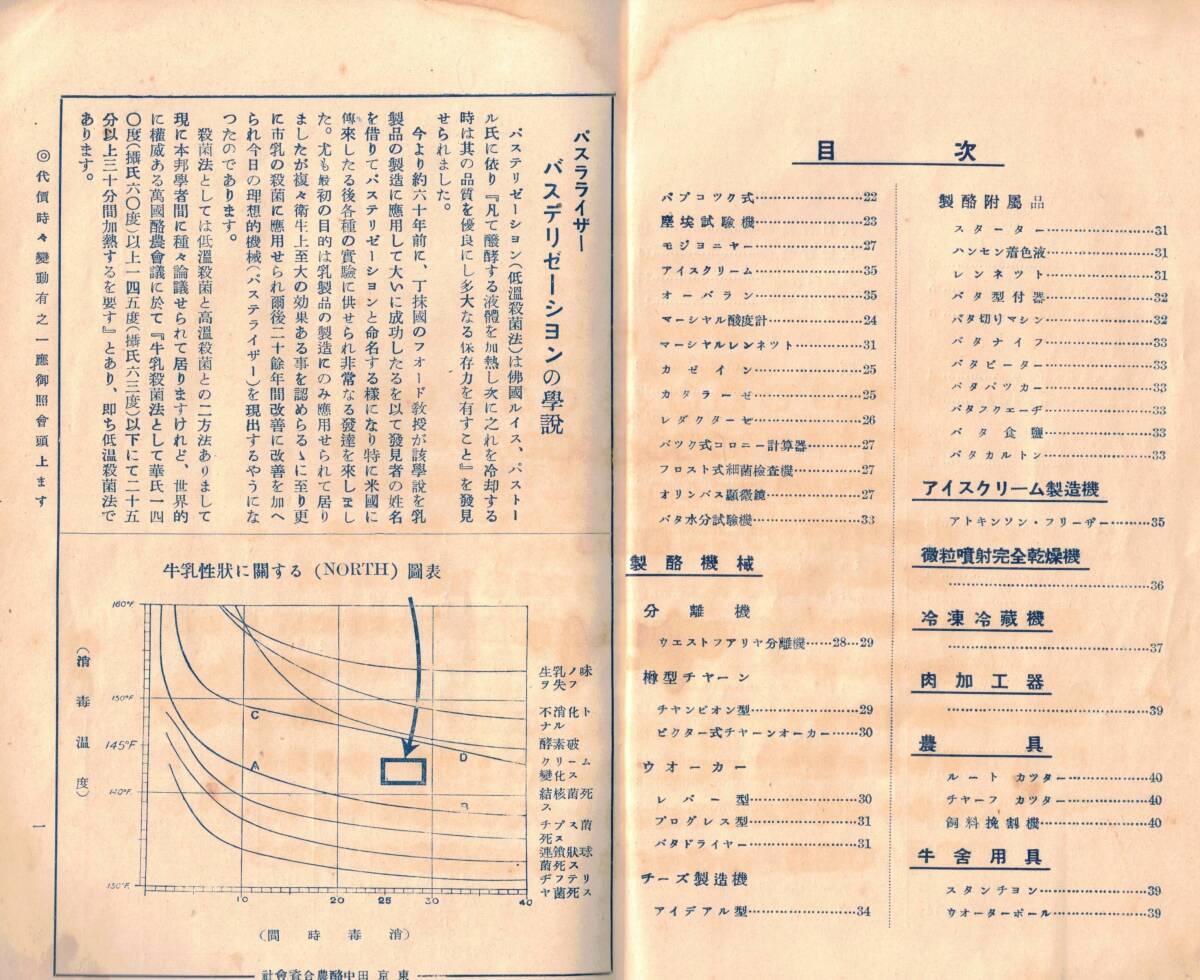 目次
バブコツク式……22
塵埃試驗機……23
モジヨニヤー……27
アイスクリーム……35
オーバラン……35
マーシヤル酸度計……24
マーシヤルレンネツト……31
カゼイン……25
カタラーゼ……25
レダクターゼ……26
バツク式コロニー計算器……27
フロスト式細菌檢查機……27
オリンパス顯微鏡……27
バタ水分試驗機……33
製酪機械
分離機
ウエストフアリヤ分離機……28…29
樽型チヤーン
チヤンピオン型……29
ビクター式チヤーンオーカー……30
ウオーカー
レバー型……30
プログレス型……31
バタドライヤー……31
チーズ製造機
アイデアル型……34
製酪附属品
スターター……31
ハンセン着色液……31
レンネツト……31
バタ型付器……32
バタ切りマシン……32
バタナイフ……33
バタビーター……33
バタパツカー……33
バタフクエーヂ……33
バタ食鹽……33
バタカルトン……33
アイスクリーム製造機
アトキンソン・フリーザー……35
微粒噴射完全乾燥機
……36
冷凍冷藏機
……37
肉加工器
……39
農具
ルートカツター……40
チヤーフカツター……40
飼料挽割機……40
牛舍用具
スタンチヨン……39
ウオーターボール……39
パスラライザー
バスデリゼーシヨンの學說
パステリゼーシヨン(低溫殺菌法)は佛國ルイス、パストー
ル氏に依り『凡て醱酵する液體を加熱し次に之れを冷却する
時は其の品質を優良にし多大なる保存力を有すこと』を發見
せられました。
今より約六十年前に、丁抹國のフオード教授が該學說を乳
製品の製造に應用して大いに成功したるを以て發見者の姓名
を借りてパステリゼーシヨンと命名する樣になり特に米國に
傳來したる後各種の實驗に供せられ非常なる發達を來しまし
た。尤も最初の目的は乳製品の製造にのみ應用せられて居り
ましたが複々衞生上至大の効果ある事を認めらるゝに至り更
に市乳の殺菌に應用せられ爾後二十餘年間改善に改善を加へ
られ今日の理想的機械(パステライザー)を現出するやうにな
つたのであります。
殺菌法としては低溫殺菌と高溫殺菌との二方法ありまして
現に本邦學者間に種々論議せられて居りますけれど、世界的
に權威ある萬國酪農會議に於て『牛乳殺菌法として華氏一四
〇度(攝氏六〇度)以上一四五度(攝氏六三度)以下にて二十五
分以上三十分間加熱するを要す』とあり、即ち低溫殺菌法で
あります。
◎代價時々變動有之一應御照會頭上ます
一
牛乳性狀に關する (NORTH) 圖表
160°F.
150°F.
145°F.
140°F.
130°F.
(消毒溫度)
C
A
D
B
生乳ノ味
ヲ失フ
不消化ト
ナル
酵素破
クリーム
變化ス
結核菌死
ス
チブス菌
死ス
連鎖狀球
菌死ス
ヂフテリ
ヤ菌死ス
10 20 25 30 40
(間時毒消)
社會資合農酪中田京東